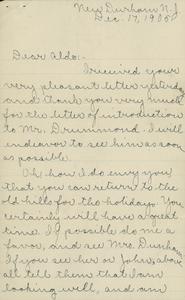 New Durham N.J.
Dec. 17, 1905
Dear Aldo:-
I received your
very pleasant letter yesterday
and thank you very much
for the letter of introduction
to Mr. Drummond. I will
endeavor to see him as soon
as possible.
Oh how I do envy you
that you can return to the
old hills for the holidays. You
certainly will have a great
time. If possible do me a
favor, and see Mrs. Dunham
If you see her or John, above
all tell them that I am
looking well, and am